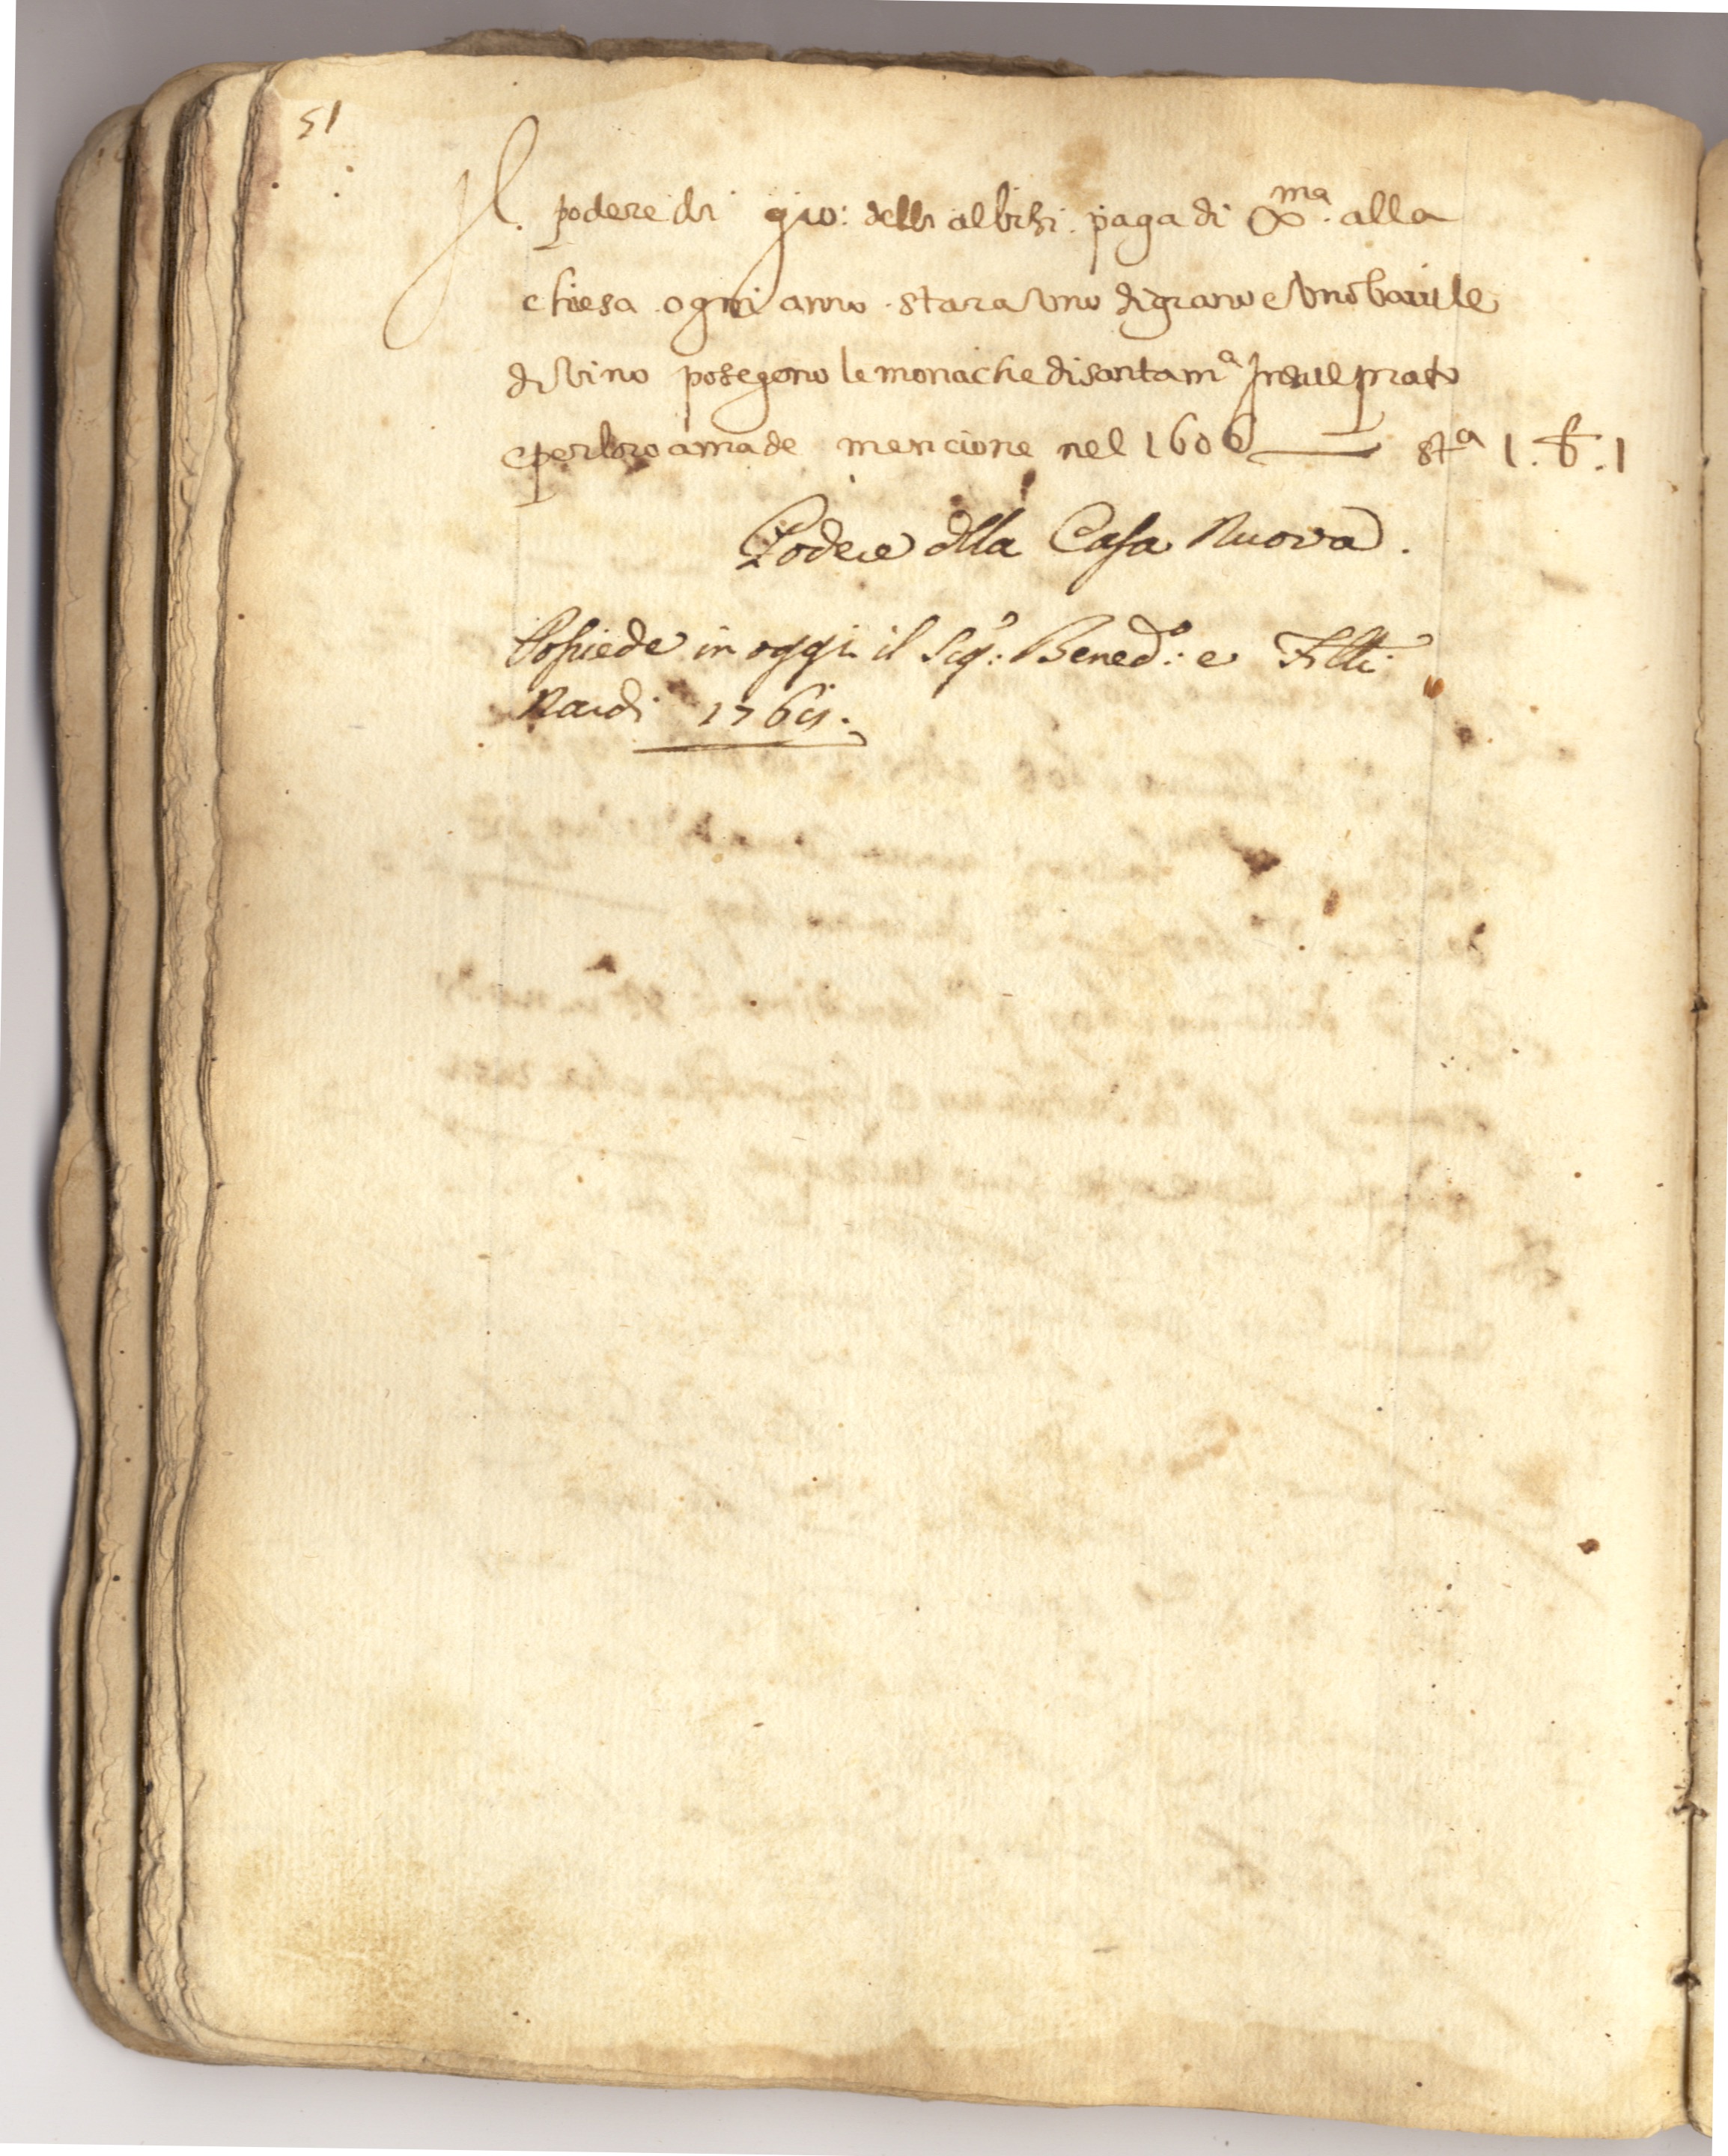 51
Il podere di gio: delli albisi paga di Xma. alla
chiesa ogni anno stara uno digrano e uno barile
di vino posegono le monache disantama. prato
eperloro amade mencione nel 1606 — sta 1. b. 1
Podere dlla Casa Nuova.
Possiede in oggi il Sigr: Bened.o: e Flli:
Nardi